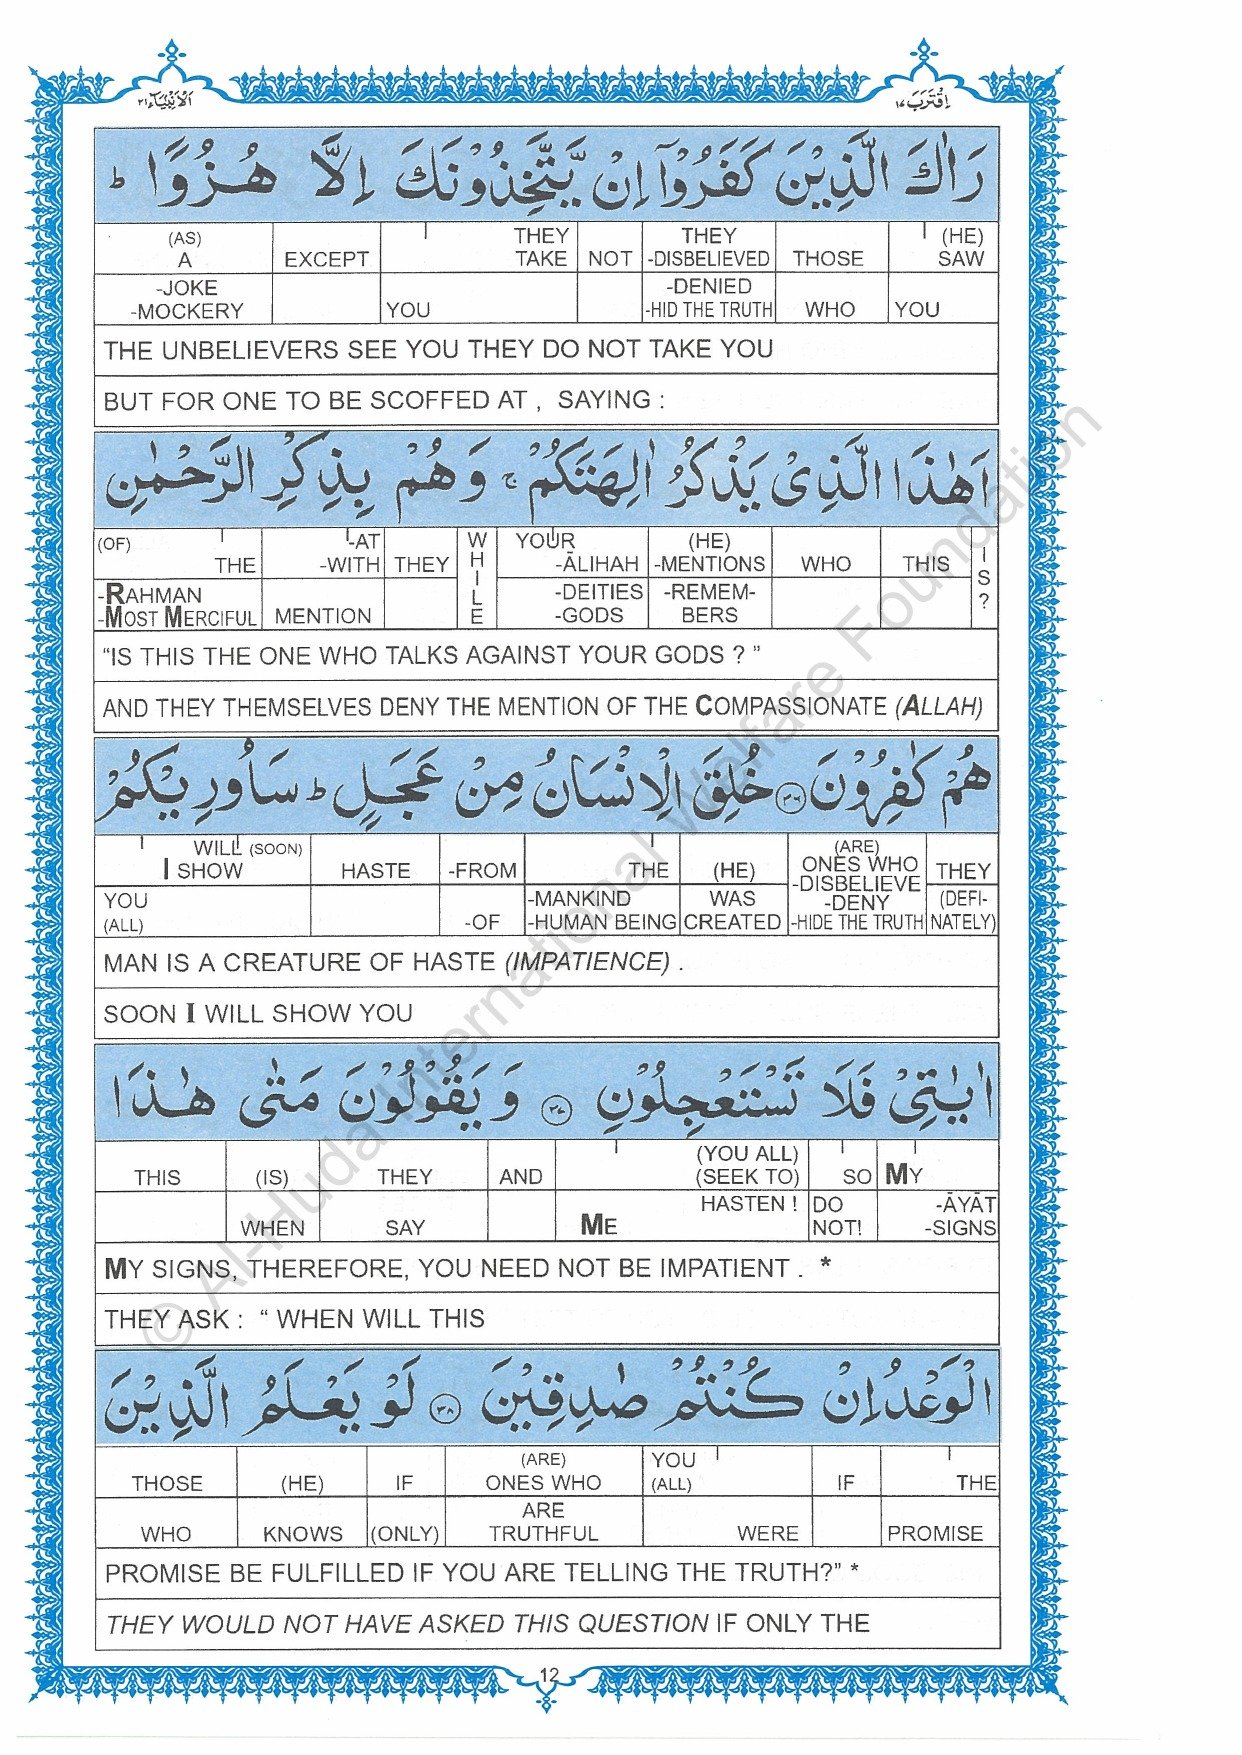 اَلْاَنْبِيَآء٢١
اِقْتَرَبَ ١٧
رَاٰكَ الَّذِيْنَ كَفَرُوْٓا اِنْ يَّتَّخِذُوْنَكَ اِلَّا هُزُوًا ؕ
(AS) A EXCEPT THEY TAKE NOT THEY -DISBELIEVED THOSE (HE) SAW
-JOKE -MOCKERY YOU -DENIED -HID THE TRUTH WHO YOU
THE UNBELIEVERS SEE YOU THEY DO NOT TAKE YOU
BUT FOR ONE TO BE SCOFFED AT , SAYING :
اَهٰذَا الَّذِىْ يَذْكُرُ اٰلِهَتَكُمْ ۚ وَهُمْ بِذِكْرِ الرَّحْمٰنِ
(OF) THE -AT -WITH THEY WHILE YOUR -ĀLIHAH (HE) -MENTIONS WHO THIS IS?
-RAHMAN -MOST MERCIFUL MENTION -DEITIES -GODS -REMEM- BERS
“IS THIS THE ONE WHO TALKS AGAINST YOUR GODS ? ”
AND THEY THEMSELVES DENY THE MENTION OF THE COMPASSIONATE (ALLAH)
هُمْ كٰفِرُوْنَ ٣٦ خُلِقَ الْاِنْسَانُ مِنْ عَجَلٍ ؕ سَاُورِيْكُمْ
WILL (SOON) I SHOW HASTE -FROM THE (HE) (ARE) ONES WHO -DISBELIEVE THEY
YOU (ALL) -OF -MANKIND -HUMAN BEING WAS CREATED -DENY -HIDE THE TRUTH (DEFI- NATELY)
MAN IS A CREATURE OF HASTE (IMPATIENCE) .
SOON I WILL SHOW YOU
اٰيٰتِىْ فَلَا تَسْتَعْجِلُوْنِ ٣٧ وَيَقُوْلُوْنَ مَتٰى هٰذَا
THIS (IS) THEY AND (YOU ALL) (SEEK TO) SO MY
WHEN SAY ME HASTEN ! DO NOT! -ĀYĀT -SIGNS
MY SIGNS, THEREFORE, YOU NEED NOT BE IMPATIENT . *
THEY ASK : “ WHEN WILL THIS
الْوَعْدُ اِنْ كُنْتُمْ صٰدِقِيْنَ ٣٨ لَوْ يَعْلَمُ الَّذِيْنَ
THOSE (HE) IF (ARE) ONES WHO YOU (ALL) IF THE
WHO KNOWS (ONLY) ARE TRUTHFUL WERE PROMISE
PROMISE BE FULFILLED IF YOU ARE TELLING THE TRUTH?” *
THEY WOULD NOT HAVE ASKED THIS QUESTION IF ONLY THE
12
© Al-Huda International Welfare Foundation